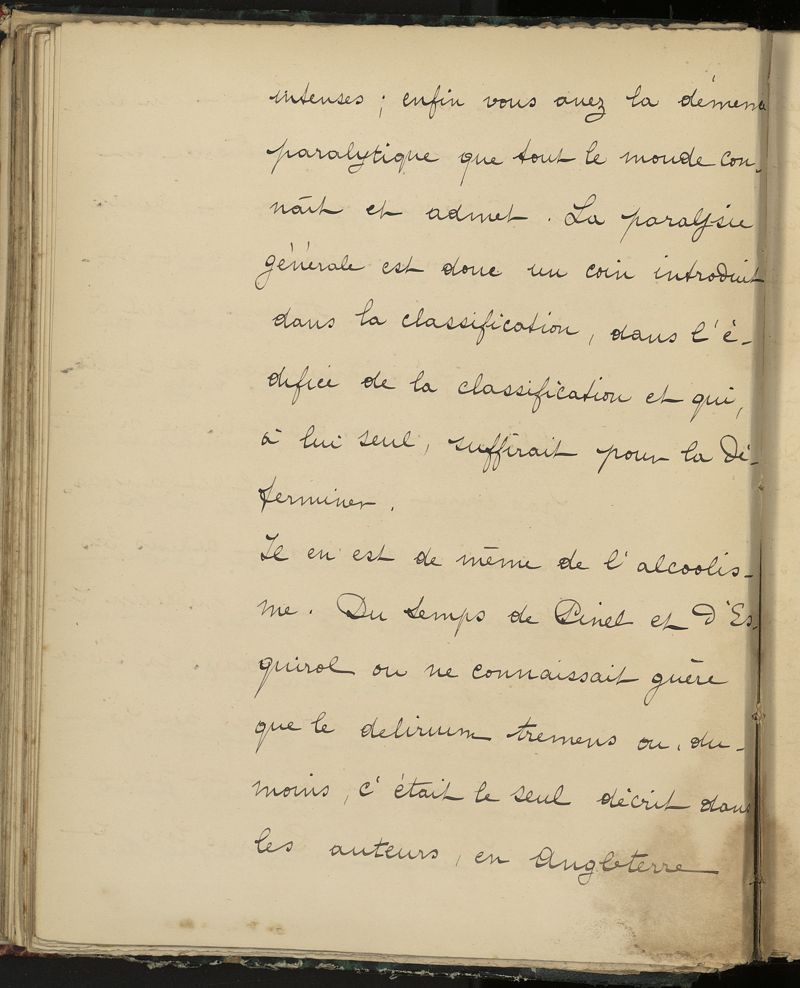 intenses ; enfin vous avez la démence
paralytique que tout le monde con-
naît et admet. La paralysie
générale est donc un coin introduit
dans la classification, dans l'é-
difice de la classification et qui,
à lui seul, suffirait pour la dé-
terminer.
Il en est de même de l'alcoolis-
me. Du temps de Pinel et d'Es-
quirol on ne connaissait guère
que le delirium tremens ou, du-
moins, c'était le seul décrit dans
les auteurs, en Angleterre